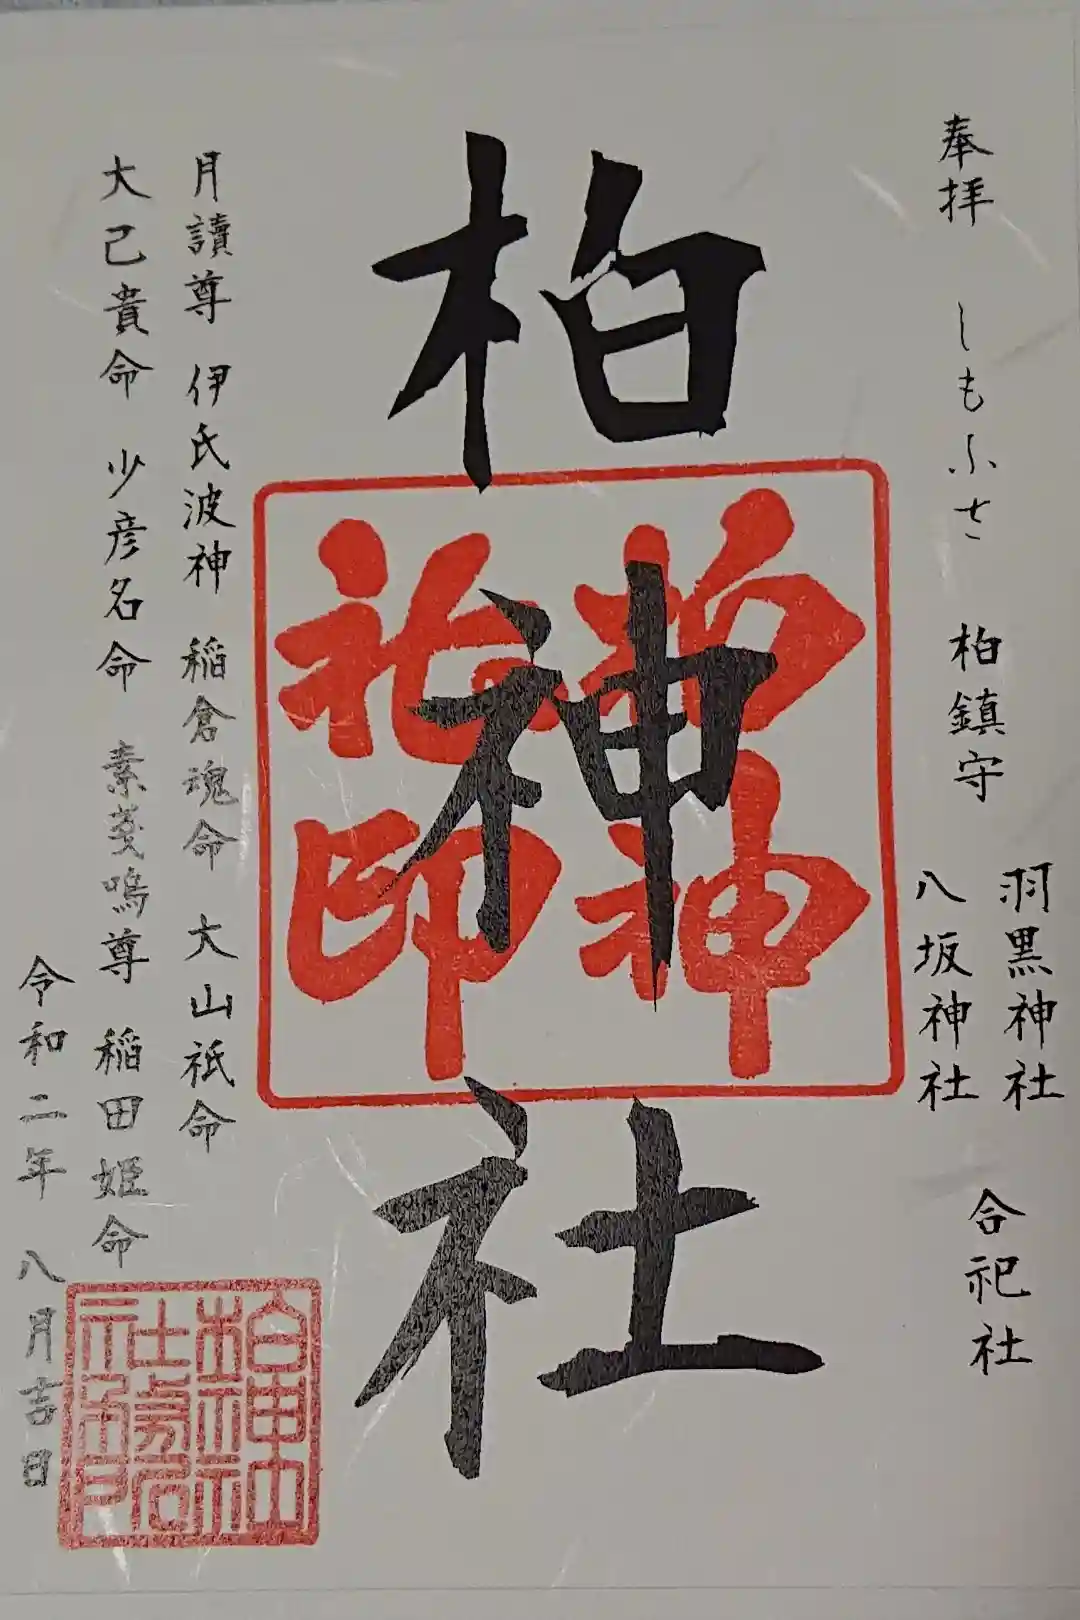 奉拝 しもふさ 柏鎮守
羽黒神社
八坂神社
合祀社
柏神社
柏神社印
月讀尊 伊氐波神 稲倉魂命 大山祇命
大己貴命 少彦名命 素戔嗚尊 稲田姫命
令和二年 八月吉日
柏神社
社務所